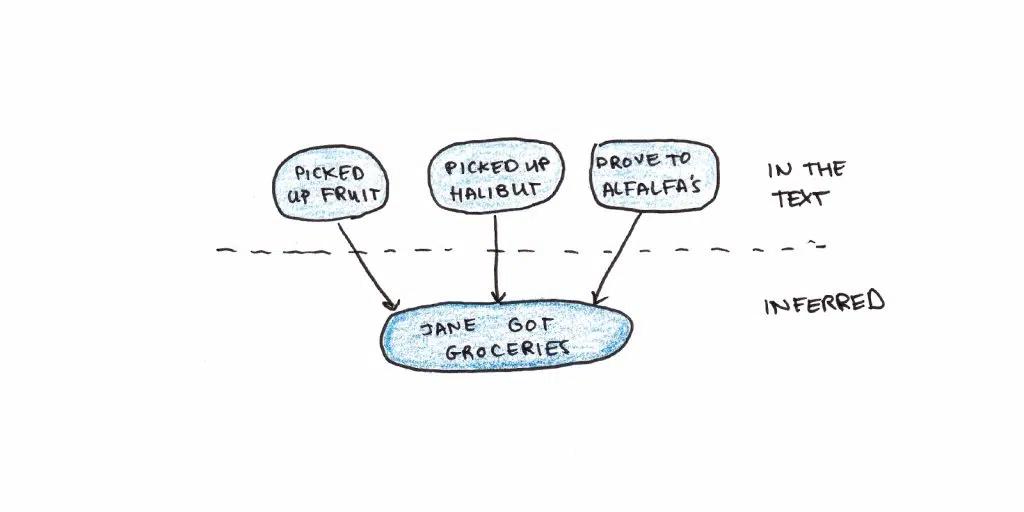 PICKED
UP FRUIT
PICKED UP
HALIBUT
DROVE TO
ALFALFA'S
IN THE
TEXT
JANE GOT
GROCERIES
INFERRED